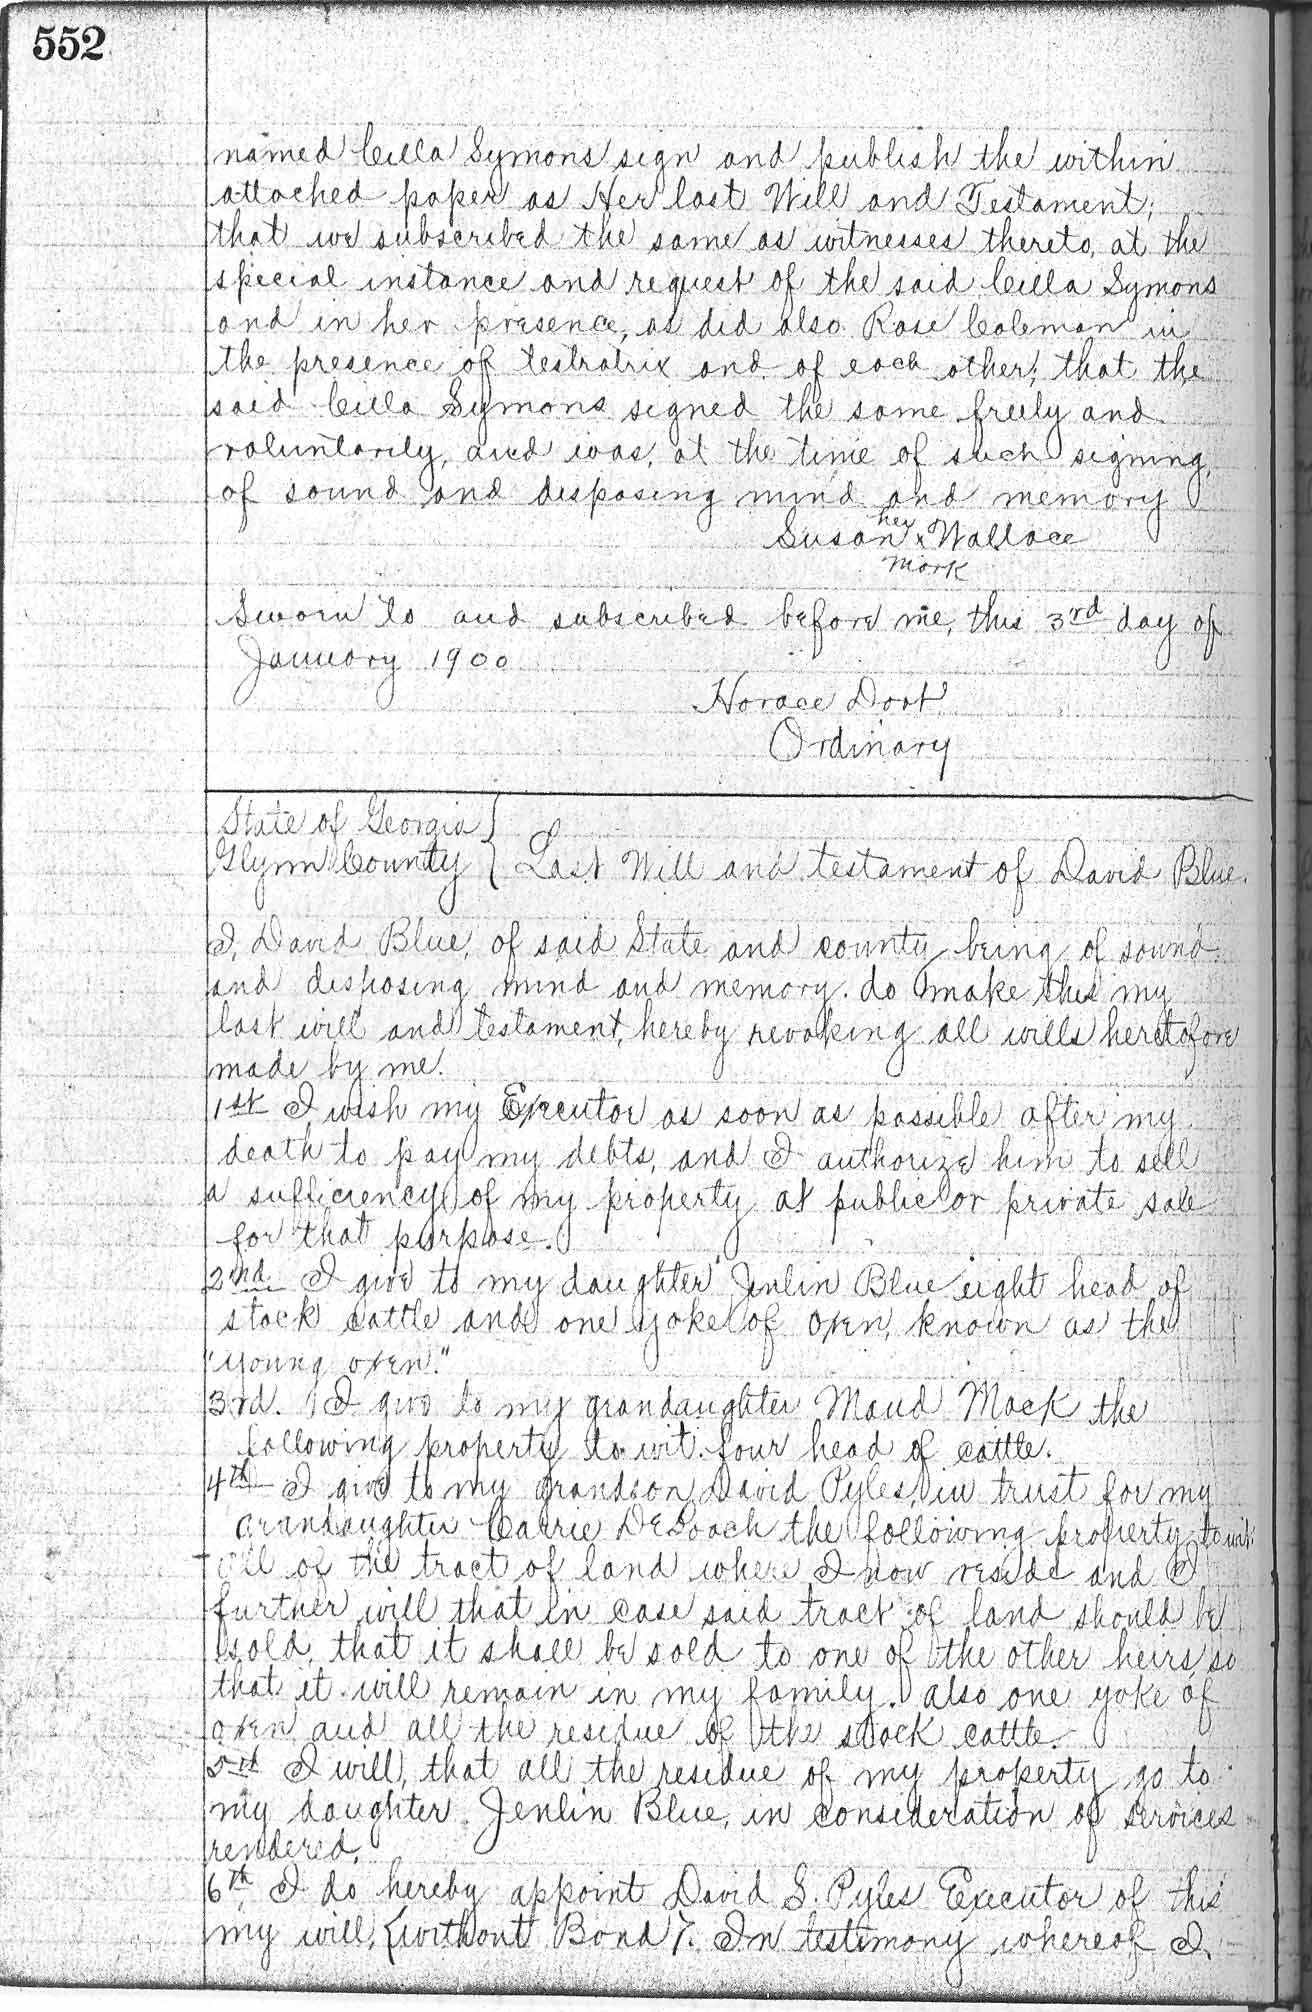 552
named Cilla Symons sign and publish the within
attached paper as Her last Will and Testament;
that we subscribed the same as witnesses thereto, at the
special instance and request of the said Cilla Symons
and in her presence, as did also Rose Coleman in
the presence of testratrix and of each other; that the
said Cilla Symons signed the same freely and
voluntarily, and was, at the time of such signing,
of sound and disposing mind and memory
her
Susan x Wallace
mark
Sworn to and subscribed before me, this 3rd day of
January 1900
Horace Dart
Ordinary
State of Georgia }
Glynn County } Last Will and testament of David Blue.
I, David Blue, of said State and county being of sound
and disposing mind and memory. do make this my
last will and testament, hereby revoking all wills heretofore
made by me.
1st I wish my Executor as soon as possible after my
death to pay my debts, and I authorize him to sell
a sufficiency of my property at public or private sale
for that purpose.
2nd. I give to my daughter Jenlin Blue eight head of
stock cattle and one yoke of oxen, known as the
"young oxen."
3rd. I give to my grandaughter Maud Mack the
following property to wit: four head of cattle.
4th I give to my grandson David Pyles, in trust for my
grandaughter Carrie DeLoach the following property towit:
all of the tract of land where I now reside and I
further will that in case said tract of land should be
sold, that it shall be sold to one of the other heirs, so
that it will remain in my family. also one yoke of
oxen and all the residue of the stock cattle.
5th I will, that all the residue of my property go to
my daughter Jenlin Blue, in consideration of services
rendered.
6th I do hereby appoint David S. Pyles Executor of this
my will, (without Bond). In testimony whereof I,